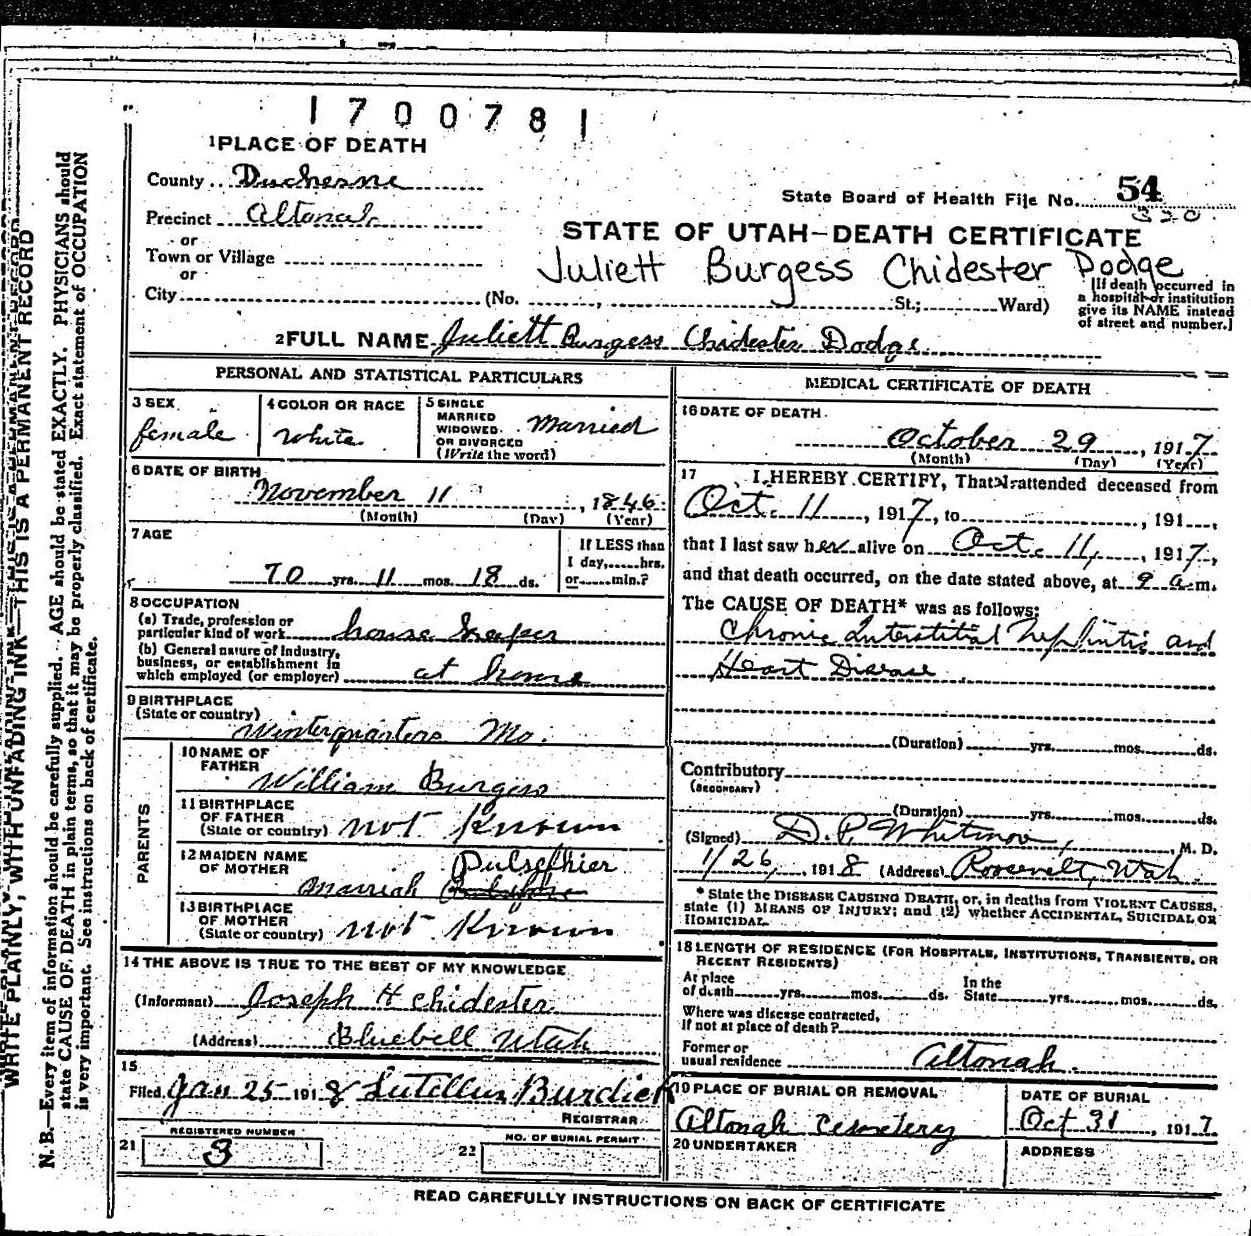 1700781
1 PLACE OF DEATH
County Duchesne
Precinct Altonah
or
Town or Village
or
City (No. , St.; Ward)
State Board of Health File No. 54
320
STATE OF UTAH—DEATH CERTIFICATE
Juliett Burgess Chidester Dodge
[If death occurred in
a hospital or institution
give its NAME instead
of street and number.]
2 FULL NAME Juliett Burgess Chidester Dodge
PERSONAL AND STATISTICAL PARTICULARS
3 SEX
female
4 COLOR OR RACE
White
5 SINGLE
MARRIED
WIDOWED
OR DIVORCED
(Write the word)
Married
6 DATE OF BIRTH
November 11, 1846
(Month) (Day) (Year)
7 AGE
70 yrs. 11 mos. 18 ds.
If LESS than
1 day, hrs.
or min.?
8 OCCUPATION
(a) Trade, profession or
particular kind of work house keeper
(b) General nature of industry,
business, or establishment in
which employed (or employer) at home
9 BIRTHPLACE
(State or country)
Winterquarters Mo.
PARENTS
10 NAME OF
FATHER
William Burgess
11 BIRTHPLACE
OF FATHER
(State or country) not Known
12 MAIDEN NAME
OF MOTHER Pulsephier
Marriah
13 BIRTHPLACE
OF MOTHER
(State or country) not Known
14 THE ABOVE IS TRUE TO THE BEST OF MY KNOWLEDGE
(Informant) Joseph H Chidester
(Address) Bluebell Utah
15
Filed Jan 25 1918 Burdick
REGISTRAR
21 REGISTERED NUMBER
3
22 NO. OF BURIAL PERMIT
MEDICAL CERTIFICATE OF DEATH
16 DATE OF DEATH
October 29, 1917
(Month) (Day) (Year)
17 I HEREBY CERTIFY, That I attended deceased from
Oct. 11, 1917, to , 191 ,
that I last saw her alive on Oct. 11, 1917,
and that death occurred, on the date stated above, at 9 a.m.
The CAUSE OF DEATH* was as follows:
Chronic Interstitial Nephritis and
Heart Disease
(Duration) yrs. mos. ds.
Contributory
(SECONDARY)
(Duration) yrs. mos. ds.
(Signed) D. P. Whitmore, M. D.
1/26, 1918 (Address) Roosevelt, Utah
* State the DISEASE CAUSING DEATH, or, in deaths from VIOLENT CAUSES,
state (1) MEANS OF INJURY; and (2) whether ACCIDENTAL, SUICIDAL OR
HOMICIDAL.
18 LENGTH OF RESIDENCE (FOR HOSPITALS, INSTITUTIONS, TRANSIENTS, OR
RECENT RESIDENTS)
At place In the
of death yrs. mos. ds. State yrs. mos. ds.
Where was disease contracted,
if not at place of death?
Former or
usual residence Altonah.
19 PLACE OF BURIAL OR REMOVAL
Altonah Cemetery
DATE OF BURIAL
Oct 31, 1917
20 UNDERTAKER
ADDRESS
READ CAREFULLY INSTRUCTIONS ON BACK OF CERTIFICATE
WRITE PLAINLY, WITH UNFADING INK—THIS IS A PERMANENT RECORD
N. B.—Every item of information should be carefully supplied. AGE should be stated EXACTLY. PHYSICIANS should
state CAUSE OF DEATH in plain terms, so that it may be properly classified. Exact statement of OCCUPATION
is very important. See instructions on back of certificate.